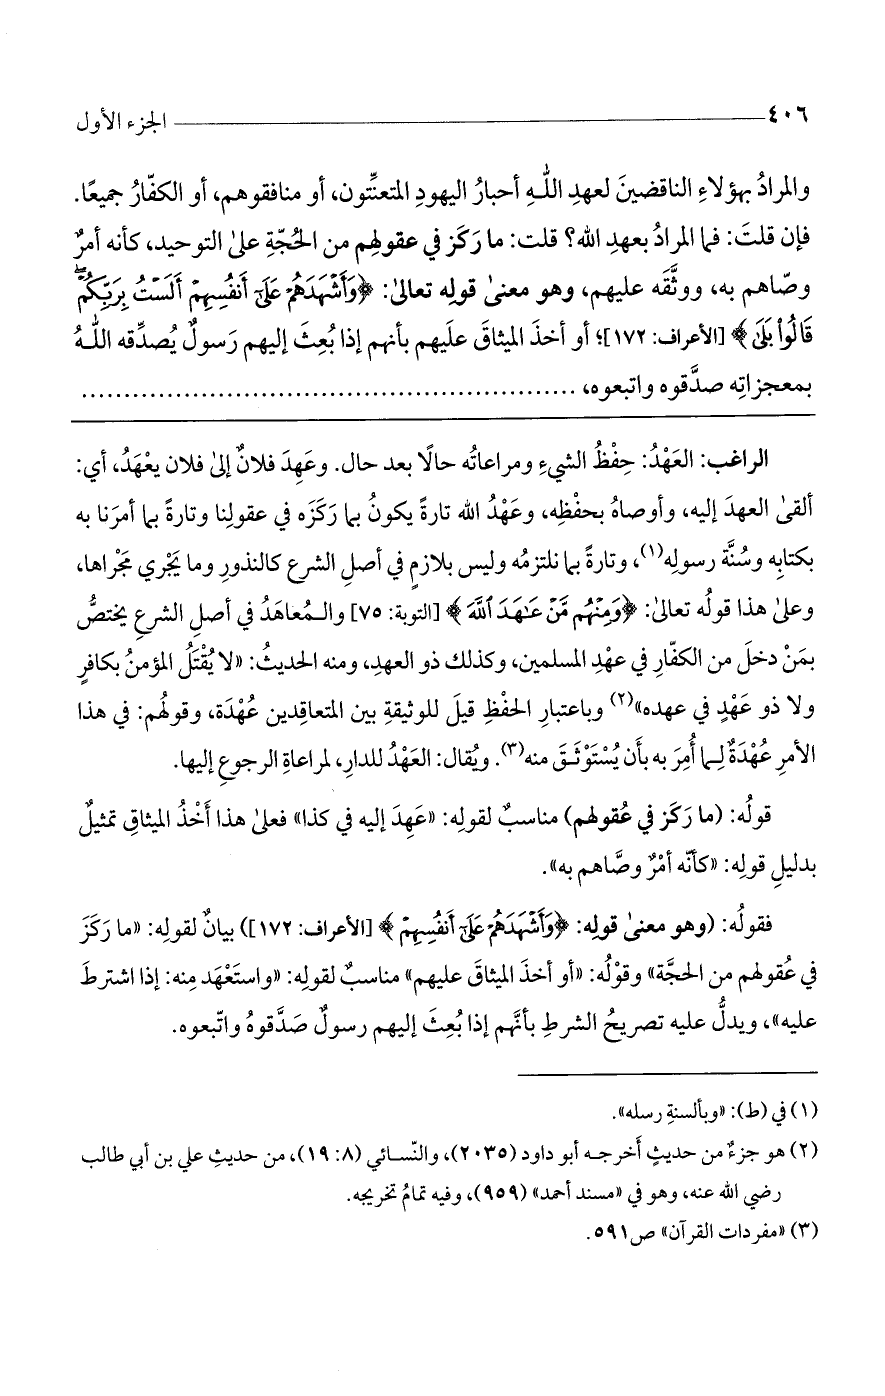 ٤٠٦ ــــــ الجزء الأول
والمرادُ بهؤلاءِ الناقضينَ لعهدِ اللَّـهِ أحبارُ اليهودِ المتعنِّتون، أو منافقوهم، أو الكفّارُ جميعًا.
فإن قلتَ: فما المرادُ بعهدِ الله؟ قلت: ما رَكَز في عقولِهم من الحُجّةِ علىٰ التوحيد، كأنه أمرٌ
وصّاهم به، ووثَّقَه عليهم، وهو معنىٰ قولِه تعالىٰ: ﴿وَأَشْهَدَهُمْ عَلَىٰٓ أَنفُسِهِمْ أَلَسْتُ بِرَبِّكُمْ ۖ
قَالُوا۟ بَلَىٰ ﴾ [الأعراف: ١٧٢]؛ أو أخذَ الميثاقَ علَيهم بأنهم إذا بُعِثَ إليهم رَسولٌ يُصدِّقه اللَّـهُ
بمعجزاتِه صدَّقوه واتبعوه، ............................................................
الراغب: العَهْدُ: حِفْظُ الشيءِ ومراعاتُه حالًا بعد حال. وعَهِدَ فلانٌ إلىٰ فلان يعْهَدُ، أي:
ألقىٰ العهدَ إليه، وأوصاهُ بحفْظِه، وعَهْدُ الله تارةً يكونُ بما رَكَزَه في عقولِنا وتارةً بما أمرَنا به
بكتابِه وسُنَّة رسولِه(١)، وتارةً بما نلتزمُه وليس بلازمٍ في أصلِ الشرع كالنذورِ وما يَجْري مَجْراها،
وعلىٰ هذا قولُه تعالىٰ: ﴿وَمِنْهُم مَّنْ عَـٰهَدَ ٱللَّهَ ﴾ [التوبة: ٧٥] والـمُعاهَدُ في أصلِ الشرعِ يختصُّ
بمَنْ دخلَ من الكفّارِ في عهْدِ المسلمين، وكذلك ذو العهدِ، ومنه الحديثُ: «لا يُقْتَلُ المؤمنُ بكافرٍ
ولا ذو عَهْدٍ في عهده»(٢) وباعتبارِ الحفْظِ قيلَ للوثيقةِ بين المتعاقِدين عُهْدَة، وقولُهم: في هذا
الأمرِ عُهْدَةٌ لِـما أُمِرَ به بأَن يُسْتَوْثَـقَ منه(٣). ويُقال: العَهْدُ للدارِ، لمراعاةِ الرجوعِ إليها.
قولُه: (ما رَكَز في عُقولهم) مناسبٌ لقولِه: «عَهِدَ إليه في كذا» فعلىٰ هذا أَخْذُ الميثاقِ تمثيلٌ
بدليلِ قولِه: «كأنّه أمْرٌ وصَّاهم به».
فقولُه: (وهو معنىٰ قولِه: ﴿وَأَشْهَدَهُمْ عَلَىٰٓ أَنفُسِهِمْ ﴾ [الأعراف: ١٧٢]) بيانٌ لقولِه: «ما رَكَزَ
في عُقولهم من الحجَّة» وقوْلُه: «أو أخذَ الميثاقَ عليهم» مناسبٌ لقولِه: «واستَعْهَد مِنه: إذا اشترطَ
عليه»، ويدلُّ عليه تصريحُ الشرطِ بأنَّهم إذا بُعِثَ إليهم رسولٌ صَدَّقوهُ واتّبعوه.
(١) في (ط): «وبألسنةِ رسله».
(٢) هو جزءٌ من حديثٍ أخرجـه أبو داود (٢٠٣٥)، والنّسـائي (٨: ١٩)، من حديثِ علي بن أبي طالب
رضي الله عنه، وهو في «مسند أحمد» (٩٥٩)، وفيه تمامُ تخريجِه.
(٣) «مفردات القرآن» ص٥٩١.